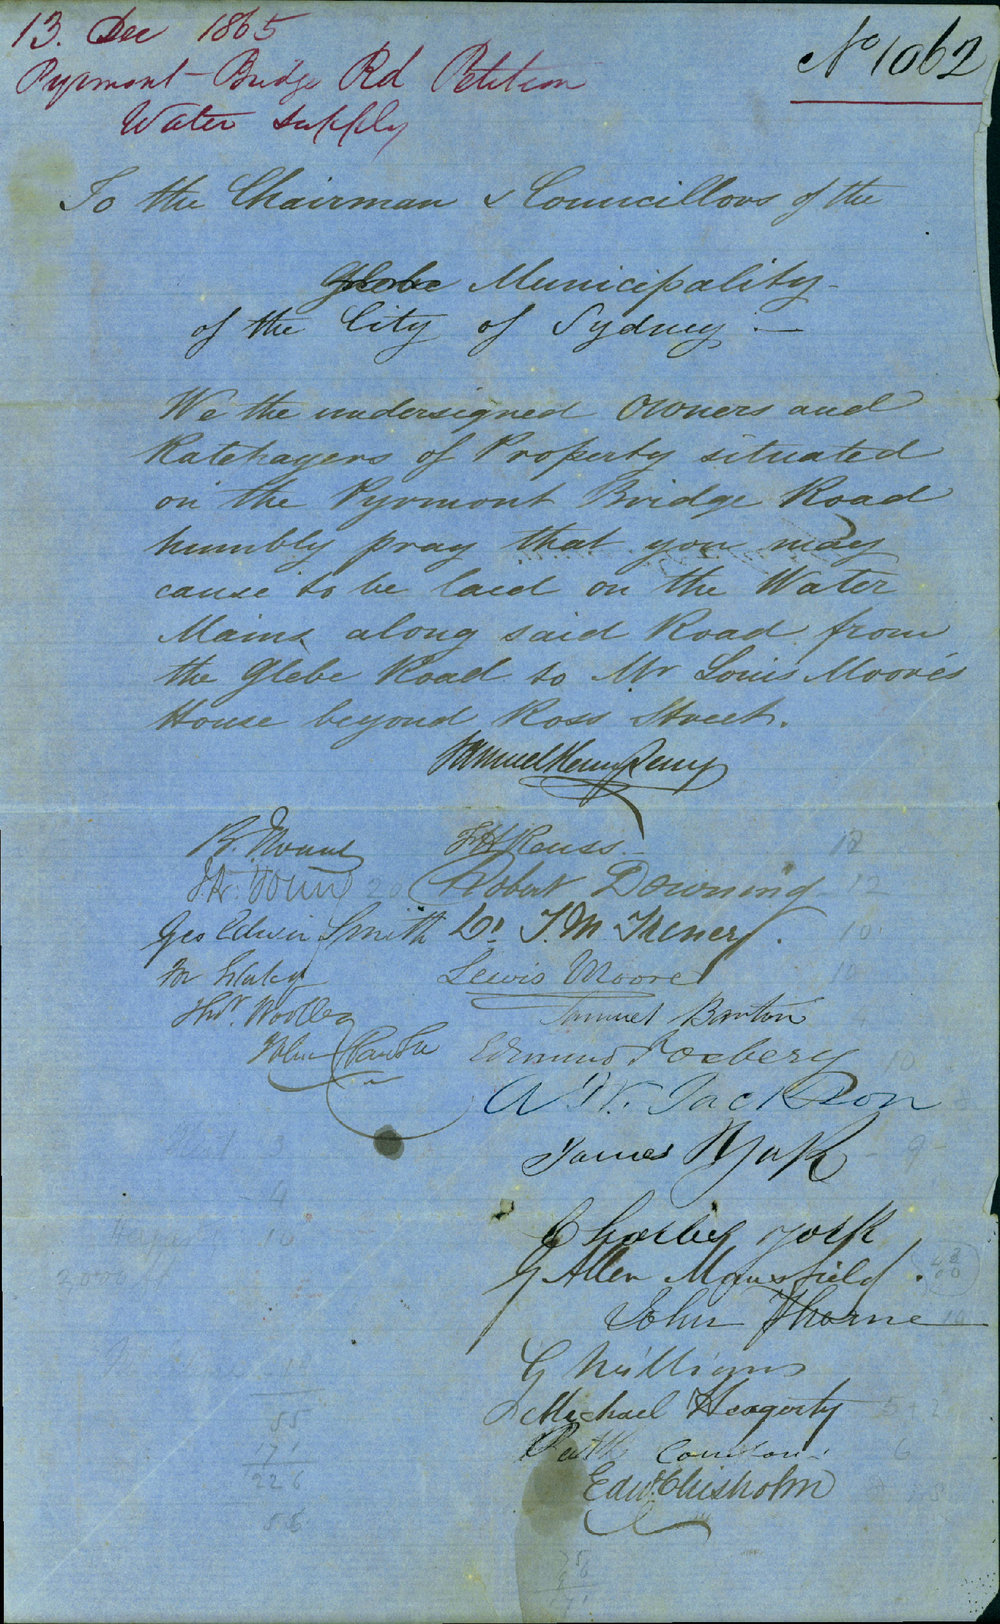 13. Dec 1865
No 1062
Pyrmont-Bridge Rd Petition
Water Supply
To the Chairman & Councillors of the
Glebe Municipality -
of the City of Sydney. —
We the undersigned Owners and
Ratepayers of Property situated
on the Pyrmont Bridge Road
humbly pray that you may
cause to be laid on the Water
Mains along said Road from
the Glebe Road to Mr Louis Moore's
House beyond Ross Street.
Samuel
F H Reuss 12
20 Robert Downing 12
Geo Edwin Smith Dr. J. M. 10
Lewis Moore 10
Thos. Woolley Samuel Banton
John Edmund 10
A W. Jackson 8
James York 9
Charles York
G Allen Mansfield.
John Thorne 10
G Williams
Michael Heagerty
6
Edwd Chisholm
55
17
226
55